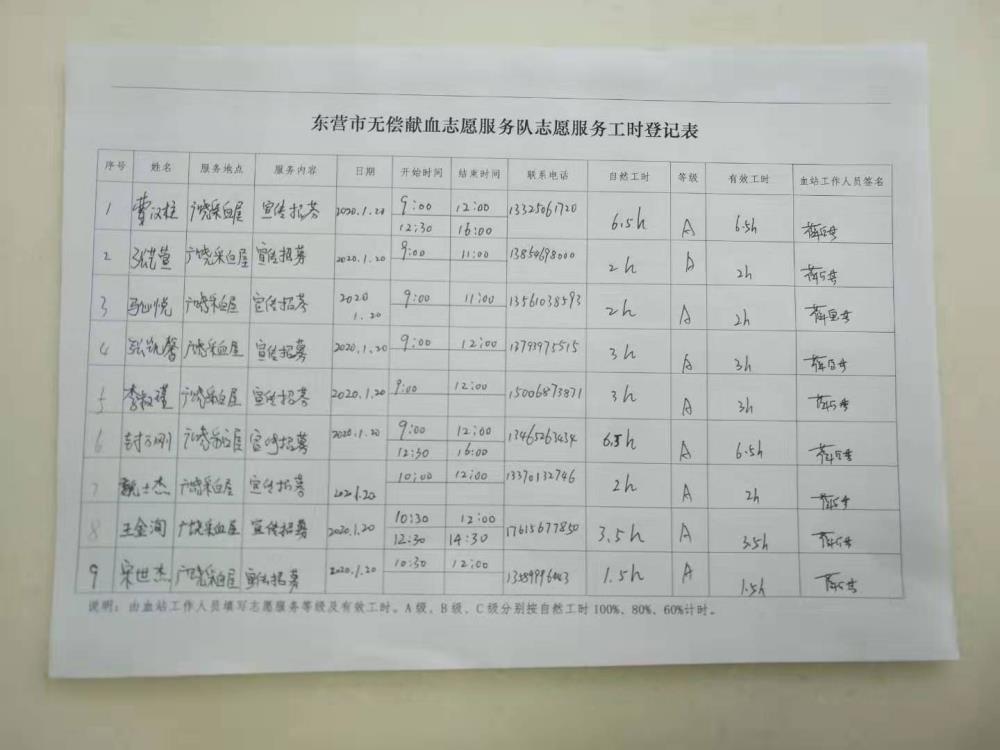 东营市无偿献血志愿服务队志愿服务工时登记表
序号 姓名 服务地点 服务内容 日期 开始时间 结束时间 联系电话 自然工时 等级 有效工时 血站工作人员签名
1 广饶采血屋 宣传招募 2020.1.20 9:00 12:00 13325061720 6.5h A 6.5h
12:30 16:00
2 广饶采血屋 宣传招募 2020.1.20 9:00 11:00 13854698000 2h A 2h
3 广饶采血屋 宣传招募 2020 1.20 9:00 11:00 13561038593 2h A 2h
4 张凯馨 广饶采血屋 宣传招募 2020.1.20 9:00 12:00 13793975515 3h A 3h
5 李淑瑾 广饶采血屋 宣传招募 2020.1.20 9:00 12:00 15006873871 3h A 3h
6 广饶采血屋 宣传招募 2020.1.20 9:00 12:00 13465263434 6.5h A 6.5h
12:30 16:00
7 魏士杰 广饶采血屋 宣传招募 10:00 12:00 13370132746 2h A 2h
8 王金洵 广饶采血屋 宣传招募 2020.1.20 10:30 12:00 17615677850 3.5h A 3.5h
12:30 14:30
9 宋世杰 广饶采血屋 宣传招募 2020.1.20 10:30 12:00 1.5h A 1.5h
说明：由血站工作人员填写志愿服务等级及有效工时。A级、B级、C级分别按自然工时100%、80%、60%计时。